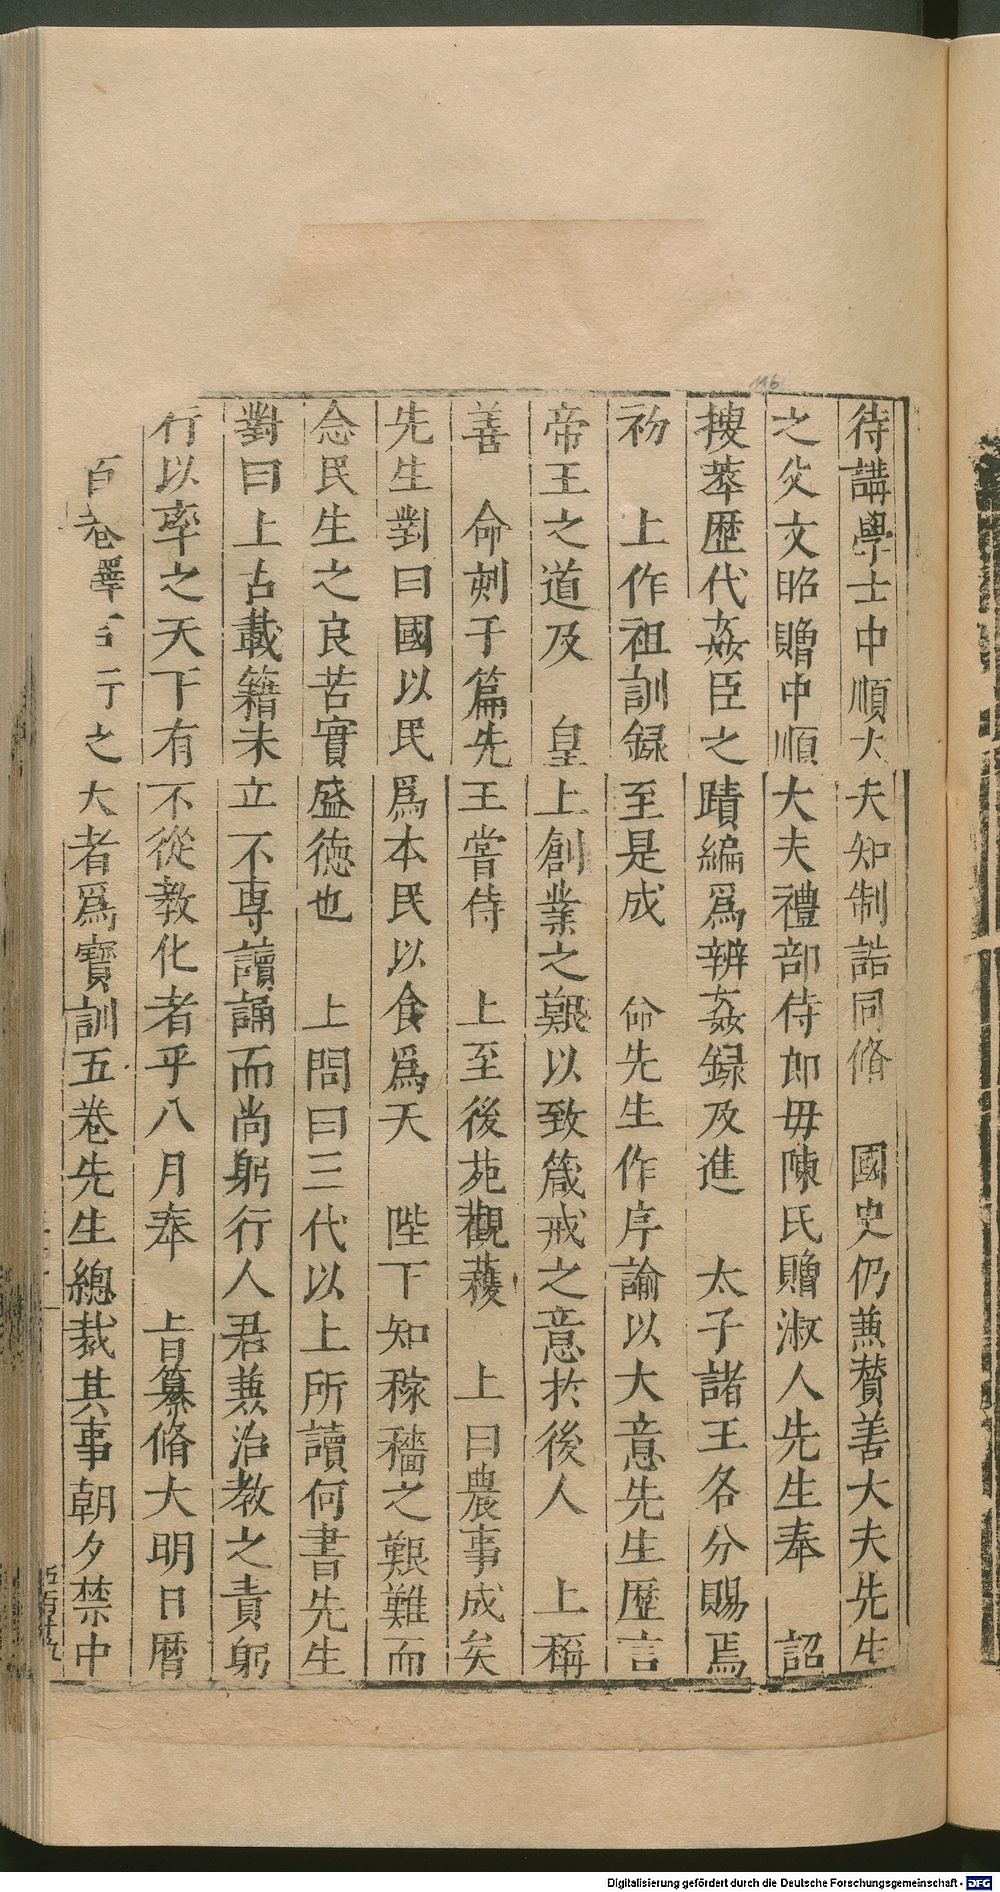 待講學士中順大夫知制誥同脩　國史仍兼賛善大夫先生
之父文昭贈中順大夫禮部侍郎毋陳氏贈淑人先生奉　詔
捜萃歴代姦臣之蹟編爲辨姦録及進　太子諸王各分賜焉
初　上作祖訓録至是成　命先生作序諭以大意先生歴言
帝王之道及　皇上創業之艱以致箴戒之意於後人　上稱
善　命刻于篇先王嘗侍　上至後苑觀穫　上曰農事成矣
先生對曰國以民爲本民以食爲天　陛下知稼穡之艱難而
念民生之良苦實盛徳也　上問曰三代以上所讀何書先生
對曰上古載籍未立不専讀誦而尚躬行人君兼治教之責躬
行以率之天下有不從教化者乎八月奉　旨纂脩大明日曆
百卷擇言行之大者爲寳訓五卷先生總裁其事朝夕禁中
116
Digitalisierung gefördert durch die Deutsche Forschungsgemeinschaft - DFG